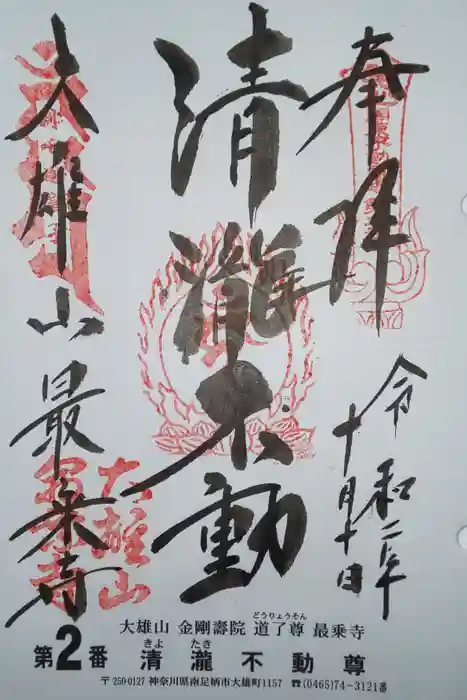 奉拝
令和二年
十月十日
清瀧不動
大雄山最乗寺
大雄山
大雄山 金剛壽院 道了尊 最乗寺
どうりょうそん
第2番 清瀧不動尊
きよ たき
〒250-0127 神奈川県南足柄市大雄町1157 ☎(0465)74-3121番